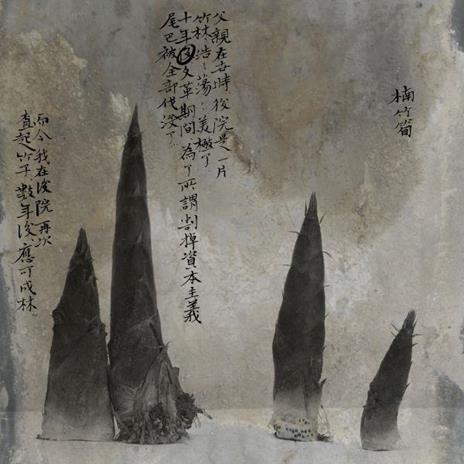 楠竹筍
父親在世時，後院是一片
竹林、浩〻蕩〻美極了
十年文革期間、為了所謂割掉資本主義
尾巴被全部伐沒了
而今我在後院再次
直起竹子、數年後、應可成林